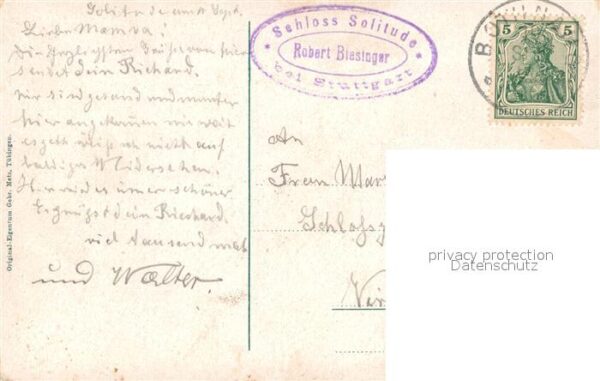 Solitude am 11 Sept.
Liebe Mamma!
Die herzlichsten Grüße von hier
sendet dein Richard.
Wir sind gesund und munter
hier angekommen wie weit
es geht weiß ich nicht auf
baldiges Widersehen.
Hir ist es immer schöner
Es grüßt dein Rieshard.
viel tausend mal
und Walter.
Original-Eigentum Gebr. Metz, Tübingen.
* Schloss Solitude *
Robert Biesinger
bei Stuttgart
5 5
DEUTSCHES REICH
An
Frau Mar
Schloss
privacy protection
Datenschutz